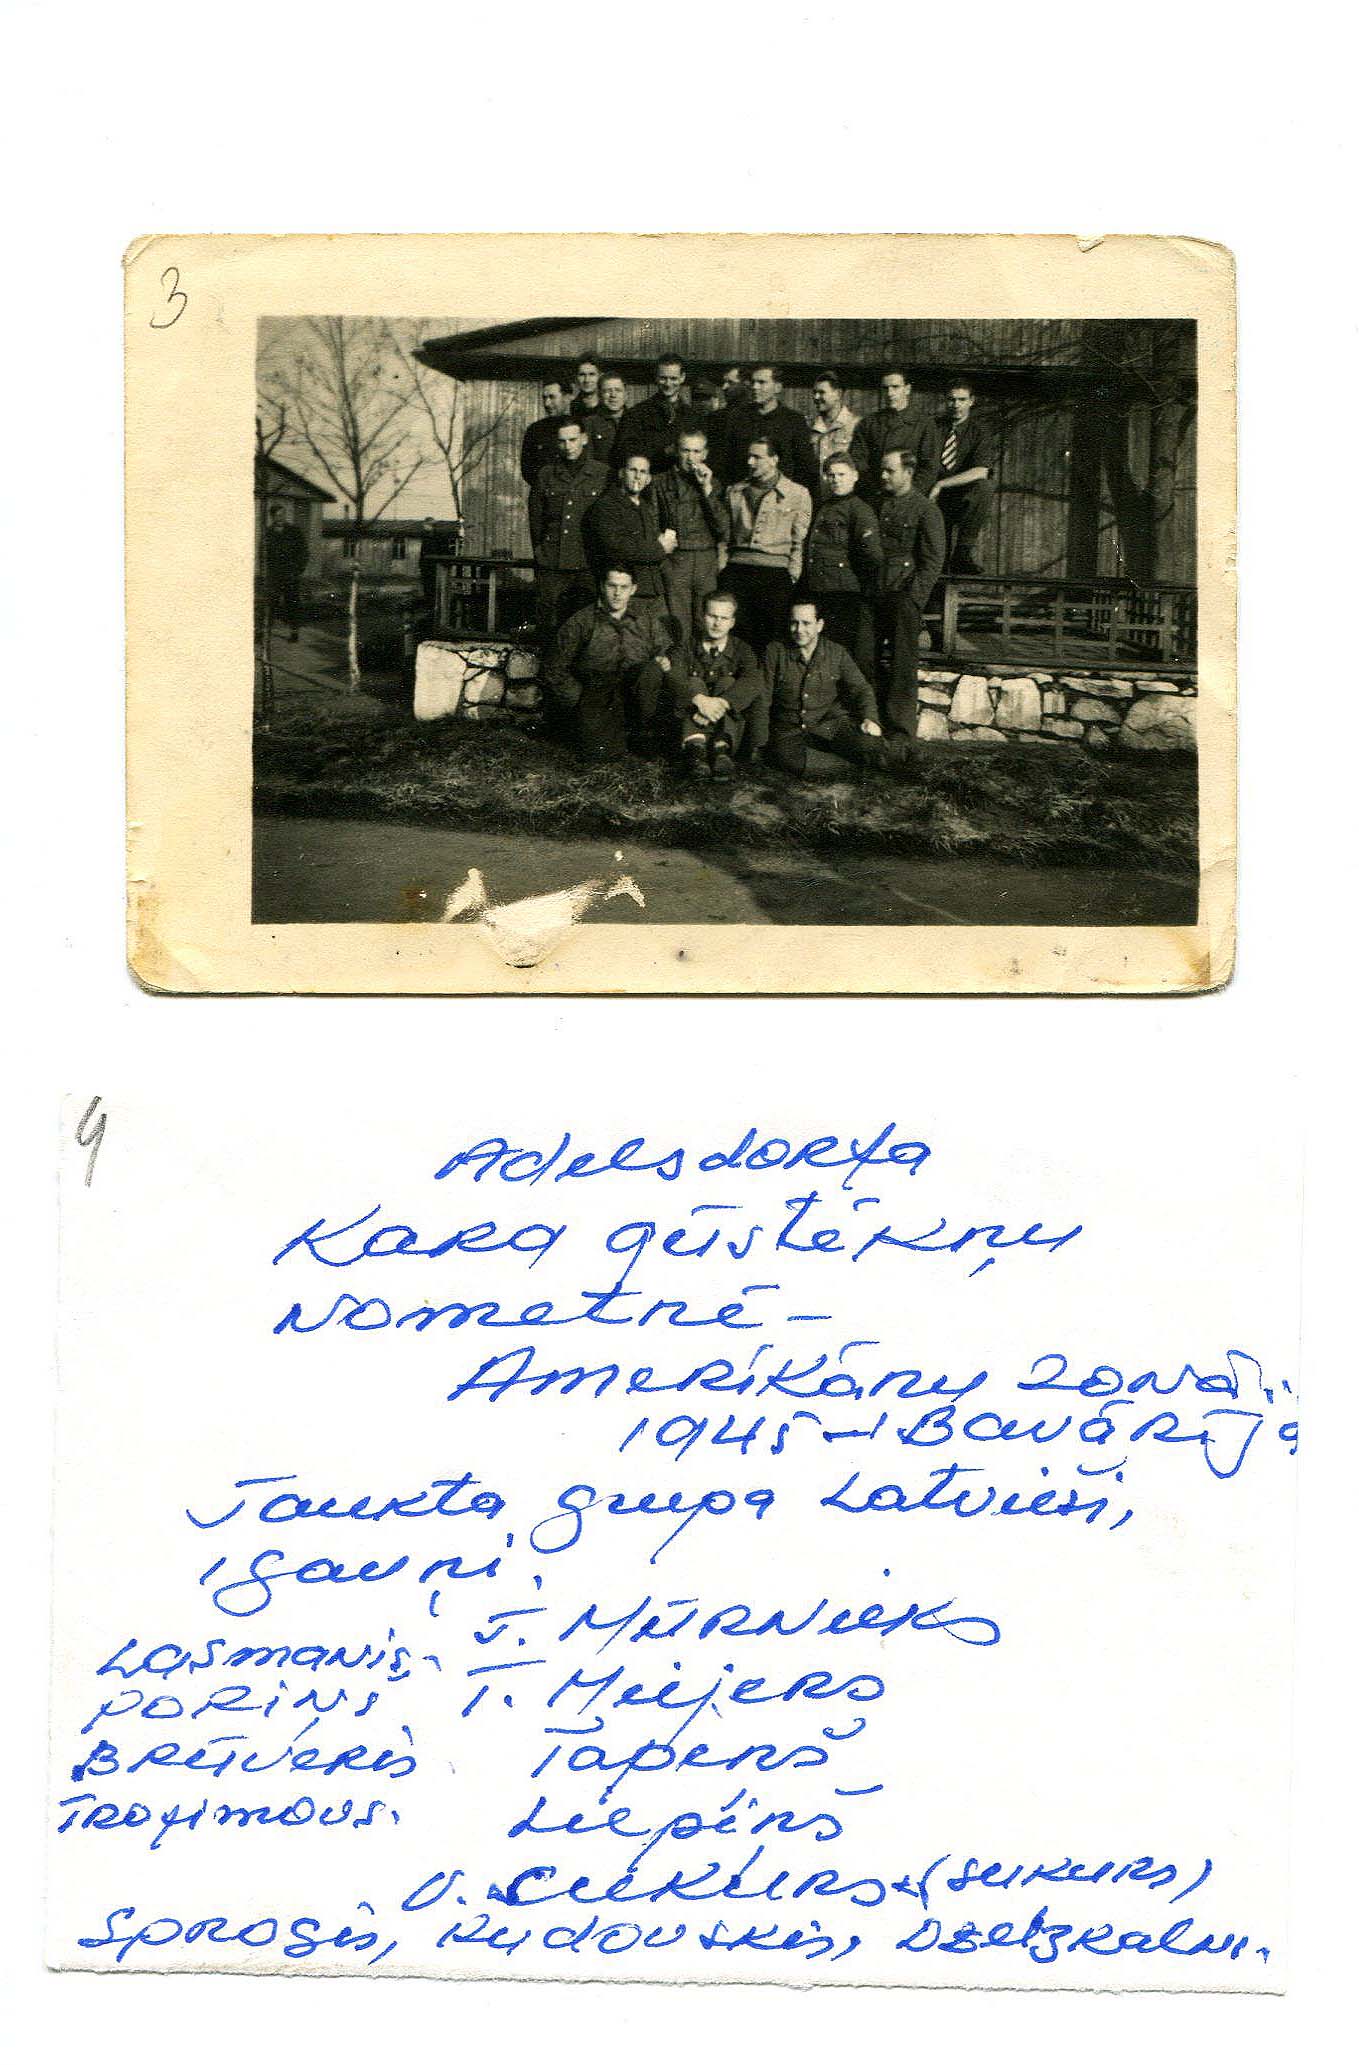 3
4
Adelsdorfa
Kara gūstēkņu
Nometnē -
Amerikāņu zonā
1945 - Bavārija
Jaukta grupa Latvieši,
Igauņi.
J. Mūrnieks
Lasmanis.
T. Meijers
Poriņš
Tapenš
Brūveris.
Liepiņš
Trofimovs.
V. Cukurs (Sukurs)
Sprogis, Rudovskis, Dzelzkalni.